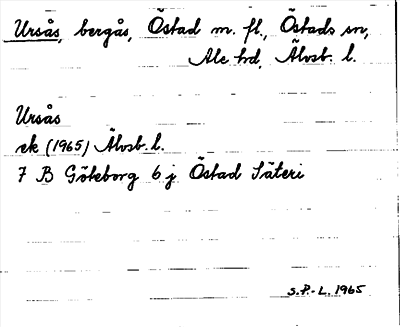 Ursås, bergås, Östad m. fl., Östads sn,
Ale hd, Älvsb. l.
Ursås
ek (1965) Älvsb. l.
7 B Göteborg 6 j Östad Säteri
S.P.-L. 1965